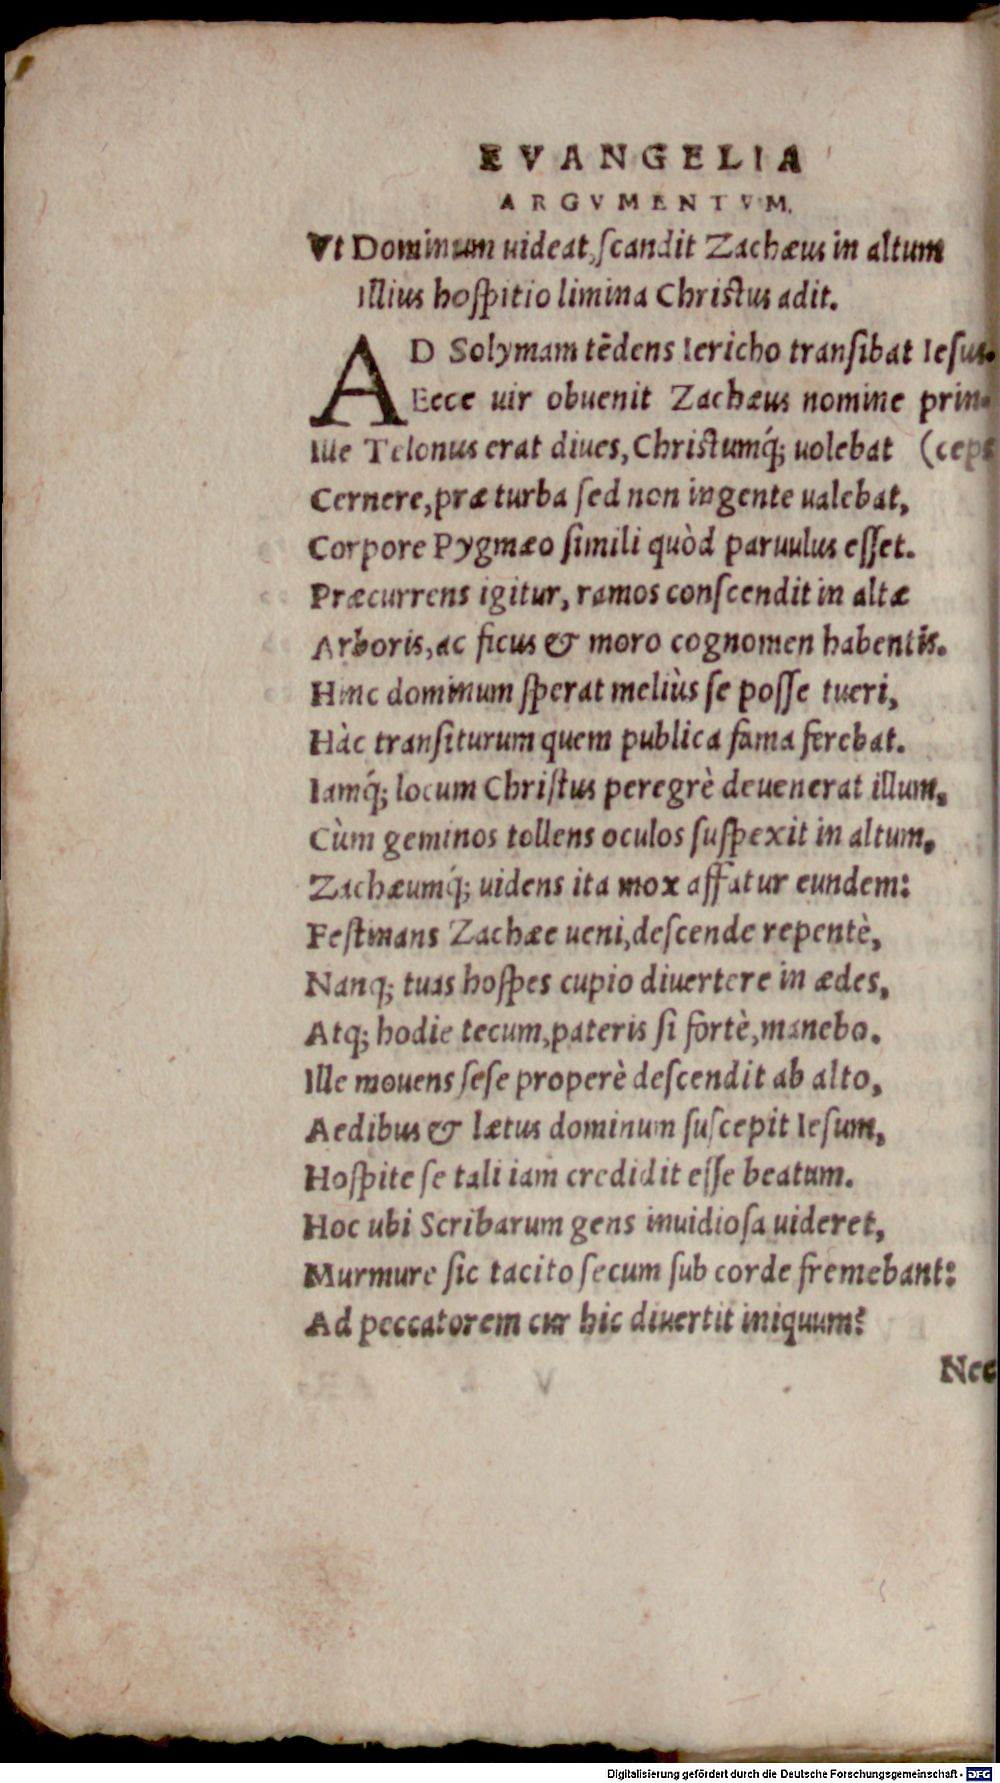 EVANGELIA
ARGVMENTVM.
Vt Dominum uideat, scandit Zachæus in altum
Illius hospitio limina Christus adit.
AD Solymam tēdens Iericho transibat Iesus.
Ecce uir obuenit Zachæus nomine prin-
Ille Telonus erat diues, Christumq́; uolebat (ceps
Cernere, præ turba sed non ingente ualebat,
Corpore Pygmæo simili quòd paruulus esset.
Præcurrens igitur, ramos conscendit in altæ
Arboris, ac ficus & moro cognomen habentis.
Hinc dominum sperat meliùs se posse tueri,
Hàc transiturum quem publica fama ferebat.
Iamq́; locum Christus peregrè deuenerat illum,
Cùm geminos tollens oculos suspexit in altum,
Zachæumq́; uidens ita mox affatur eundem:
Festinans Zachæe ueni, descende repentè,
Nanq; tuas hospes cupio diuertere in ædes,
Atq; hodie tecum, pateris si fortè, manebo.
Ille mouens sese properè descendit ab alto,
Aedibus & lætus dominum suscepit Iesum,
Hospite se tali iam credidit esse beatum.
Hoc ubi Scribarum gens inuidiosa uideret,
Murmure sic tacito secum sub corde fremebant:
Ad peccatorem cur hic diuertit iniquum?
Nec
Digitalisierung gefördert durch die Deutsche Forschungsgemeinschaft - DFG